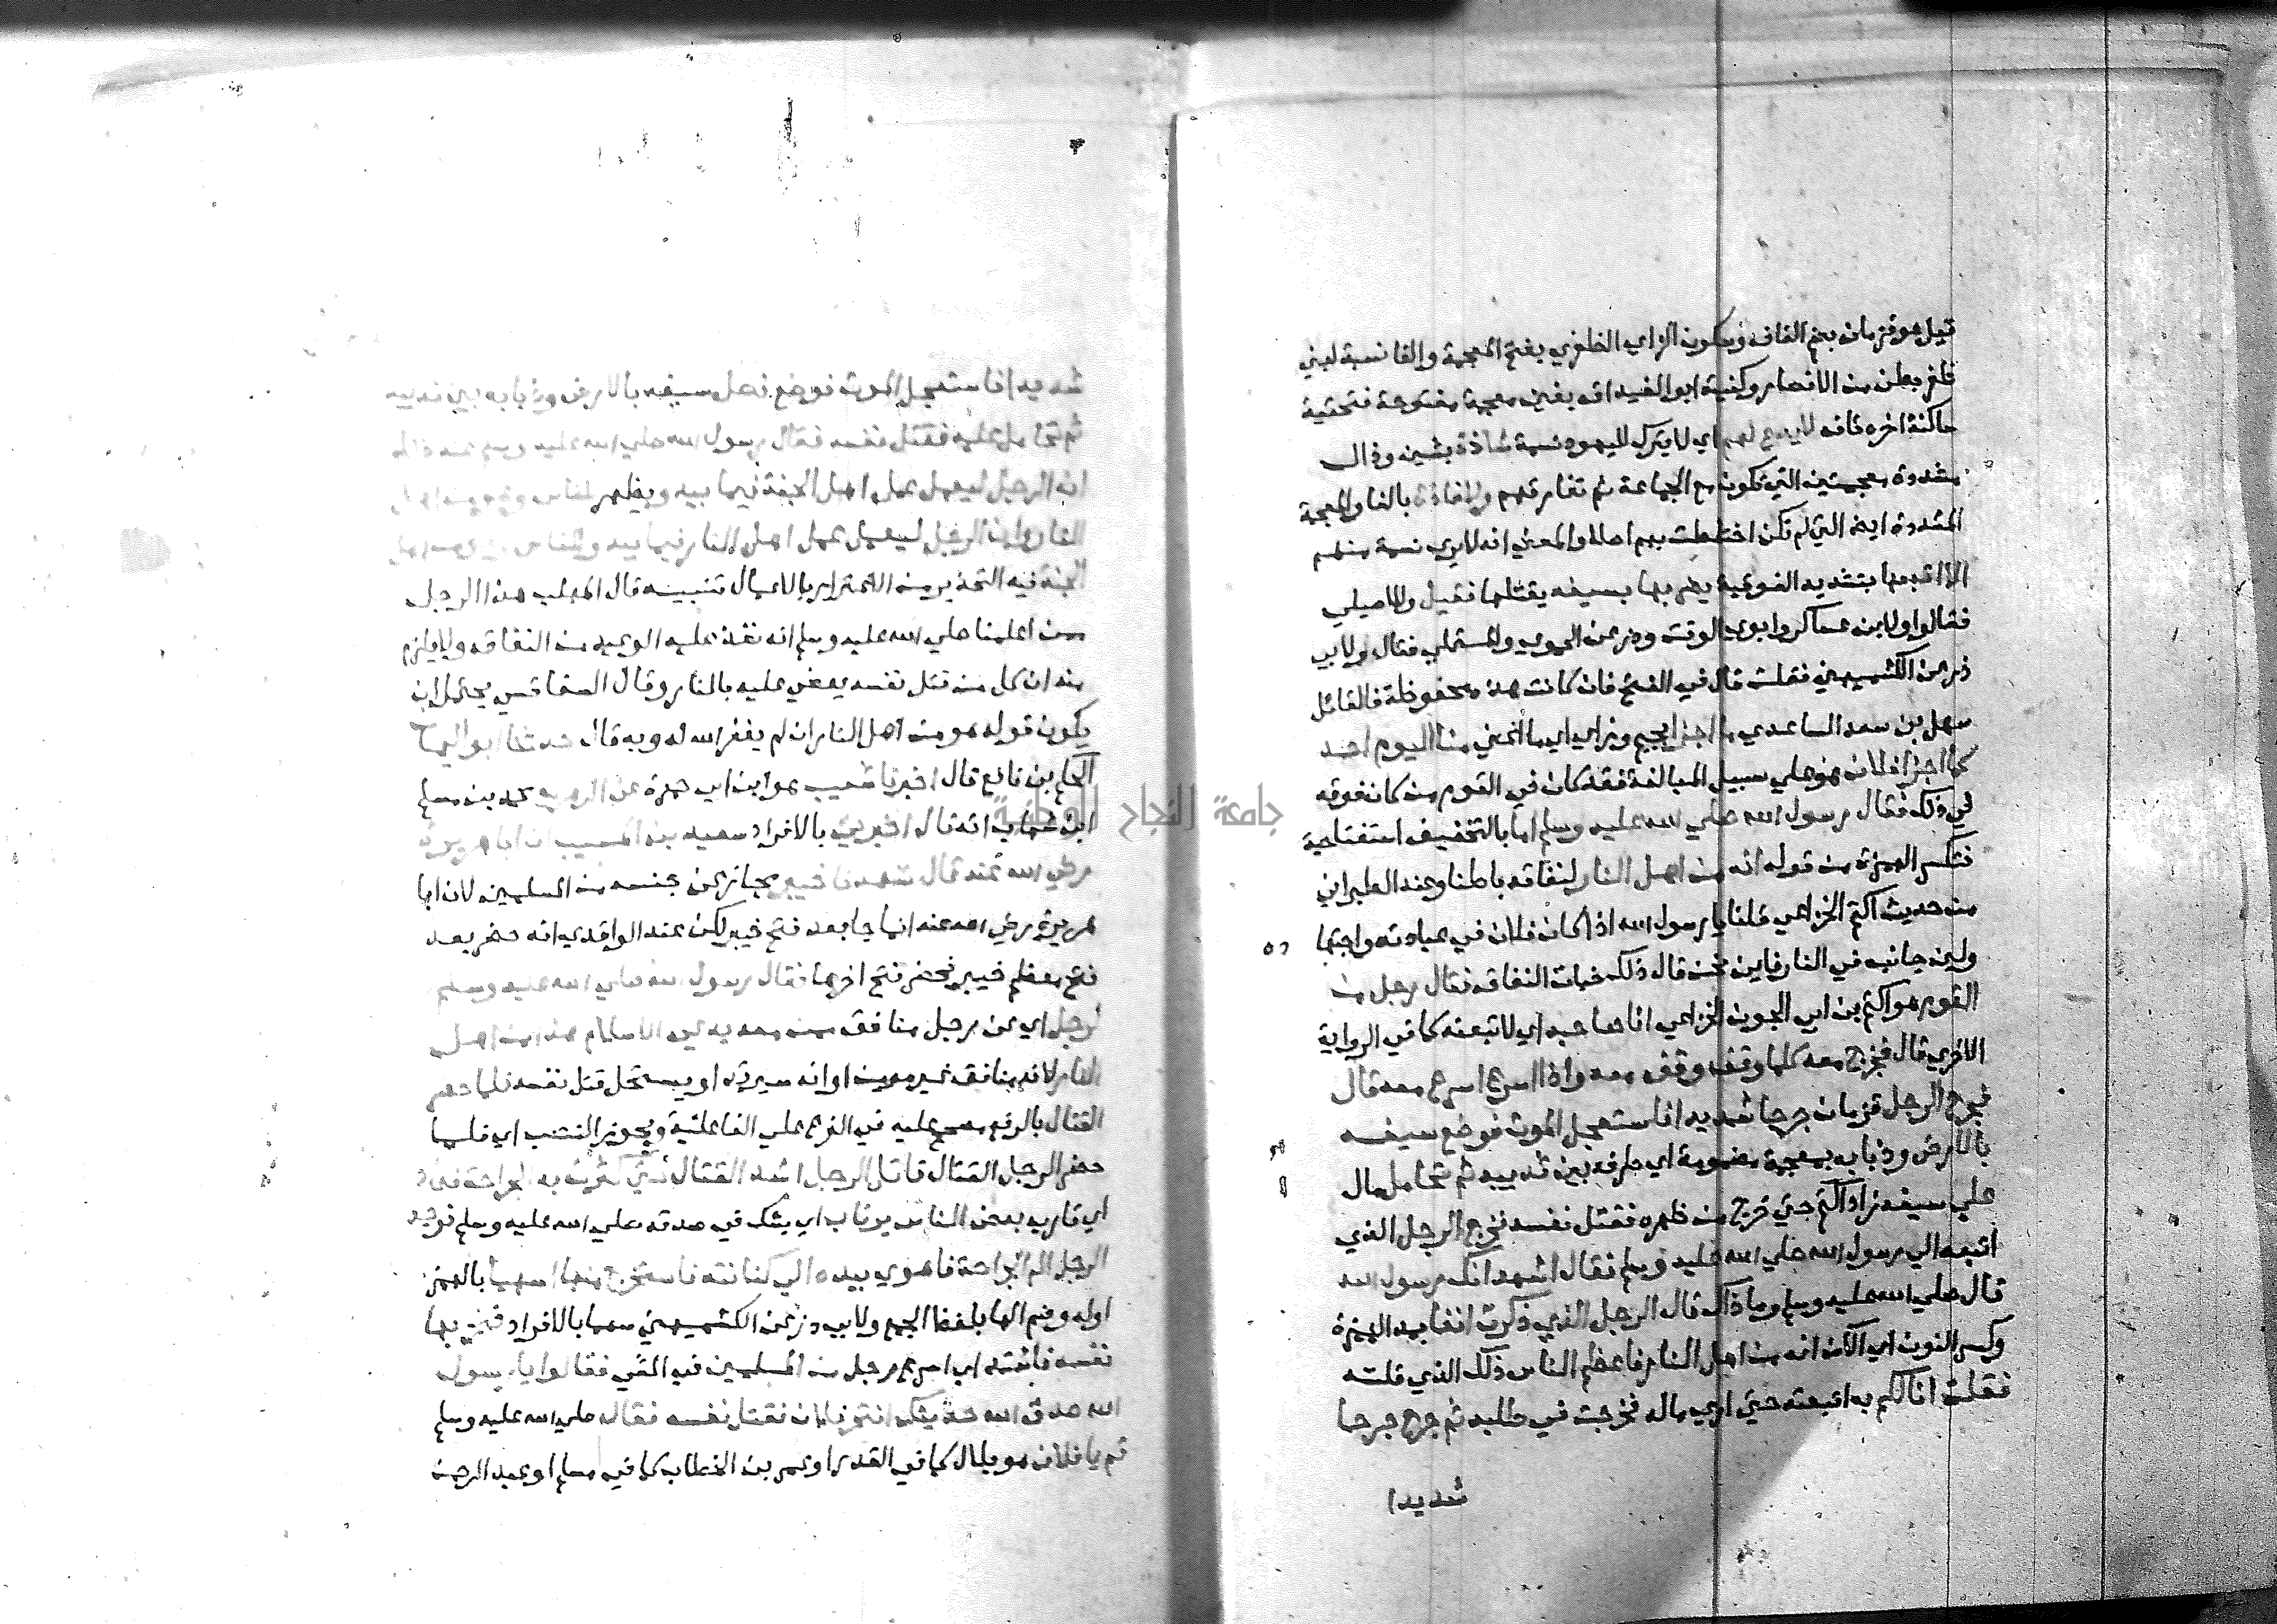 قيل هو قزمان بضم القاف وسكون الزاي الظفري بفتح المعجمة والفا نسبة لبني
ظفر بطن من الانصار وكنيته ابو الغيداق بغين معجمة مفتوحة فتحتية
ساكنة اخره قاف لا يدع لهم اي لا يترك لليهود نسمة شاذة بشين وذال
مشددة معجمتين التي تكون مع الجماعة ثم تفارقهم ولا فاذة بالفا والمعجمة
المشددة ايضا التي لم تكن اختلطت بهم اصلا والمعني انه لا يري نسمة منهم
الا اتبعها بتشديد الفوقية يضربها بسيفه يقتلها فقيل وللاصيلي
فقالوا ولابن عساكر وابوي الوقت وذر عن الحموي والمستملي فقال ولابي
ذر عن الكشميهني فقلت قال في الفتح فان كانت هذه محفوظة فالقائل
سهل بن سعد الساعدي ما اجزا بجيم وزاي اي ما اغني منا اليوم احد
كما اجزا فلان هو علي سبيل المبالغة فقد كان في القوم من كان فوقه
في ذلك فقال رسول الله صلي الله عليه وسلم اما بالتخفيف استفتاحية
فتكسر الهمزة من قوله انه من اهل النار لنفاقه باطنا وعند الطبراني
من حديث اكثم الخزاعي قلنا يا رسول الله اذا كان فلان في عبادته واجتها
ده
ولين جانبه في النار فاين نحن قال ذلك خبات النفاق فقال رجل من
القوم هو اكثم بن ابي الجون الخزاعي انا صاحبه اي لاتبعنه كما في الرواية
الاخري قال فخرج معه كلما وقف وقف معه واذا اسرع اسرع معه قال
فجرح الرجل قزمان جرحا شديدا فاستعجل الموت فوضع سيفه
بالارض وذبابه بمعجمة مضمومة اي طرفه بين ثدييه ثم تحامل مال
علي سيفه زاد اكثم حتي خرج من ظهره فقتل نفسه فخرج الرجل الذي
اتبعه الي رسول الله صلي الله عليه وسلم فقال اشهد انك رسول الله
قال صلي الله عليه وسلم وما ذاك قال الرجل الذي ذكرت انفا بمد الهمزة
وكسر النون اي الان انه من اهل النار فاعظم الناس ذلك الذي قلته
فقلت انا لكم به اتبعته حتي اري ماله فخرجت في طلبه ثم جرح جرحا
شديدا
شديدا فاستعجل الموت فوضع نصل سيفه بالارض وذبابه بين ثدييه
ثم تحامل عليه فقتل نفسه فقال رسول الله صلي الله عليه وسلم عند ذلك
ان الرجل ليعمل عمل اهل الجنة فيما يبدو ويظهر للناس وهو من اهل
النار وان الرجل ليعمل عمل اهل النار فيما يبدو للناس وهو من اهل
الجنة فيه التحذير من الاغترار بالاعمال تنبيه قال المهلب هذا الرجل
ممن اعلمنا صلي الله عليه وسلم انه نفذ عليه الوعيد من النفاق ولا يلزم
منه ان كل من قتل نفسه يقضي عليه بالنار وقال السفاقسي يحتمل ان
يكون قوله هو من اهل النار ان لم يغفر الله له وبه قال حدثنا ابو اليمان
الحكم بن نافع قال اخبرنا شعيب هو ابن ابي حمزة عن الزهري محمد بن مسلم
ابن شهاب انه قال اخبرني بالافراد سعيد بن المسيب ان ابا هريرة
رضي الله عنه قال شهدنا خيبر مجاز عن جنسه من المسلمين لان ابا
هريرة رضي الله عنه انما جا بعد فتح خيبر لكن عند الواقدي انه حضر بعد
فتح معظم خيبر فحضر فتح اخرها فقال رسول الله صلي الله عليه وسلم
لرجل اي عن رجل منافق ممن معه يدعي الاسلام هذا من اهل
النار لانه منافق غير مومن او انه سيرتد او يستحل قتل نفسه فلما حضر
القتال بالرفع مصحح عليه في الفرع علي الفاعلية ويجوز النصب اي فلما
حضر الرجل القتال قاتل الرجل اشد القتال حتي كثرت به الجراحة فكاد
اي قارب بعض الناس يرتاب اي يشك في صدقه صلي الله عليه وسلم فوجد
الرجل الم الجراحة فاهوي بيده الي كنانته فاستخرج منها اسهما بالهمز
اوله وضم الها بلفظ الجمع ولابي ذر عن الكشميهني سهما بالافراد فنحر بها
نفسه فاشتد اي اسرع رجل من المسلمين في المشي فقالوا يا رسول
الله صدق الله حديثك انتحر فلان فقتل نفسه فقال صلي الله عليه وسلم
قم يا فلان هو بلال كما في القدر او عمر بن الخطاب كما في مسلم او عبد الرحمن
جامعة النجاح الوطنية